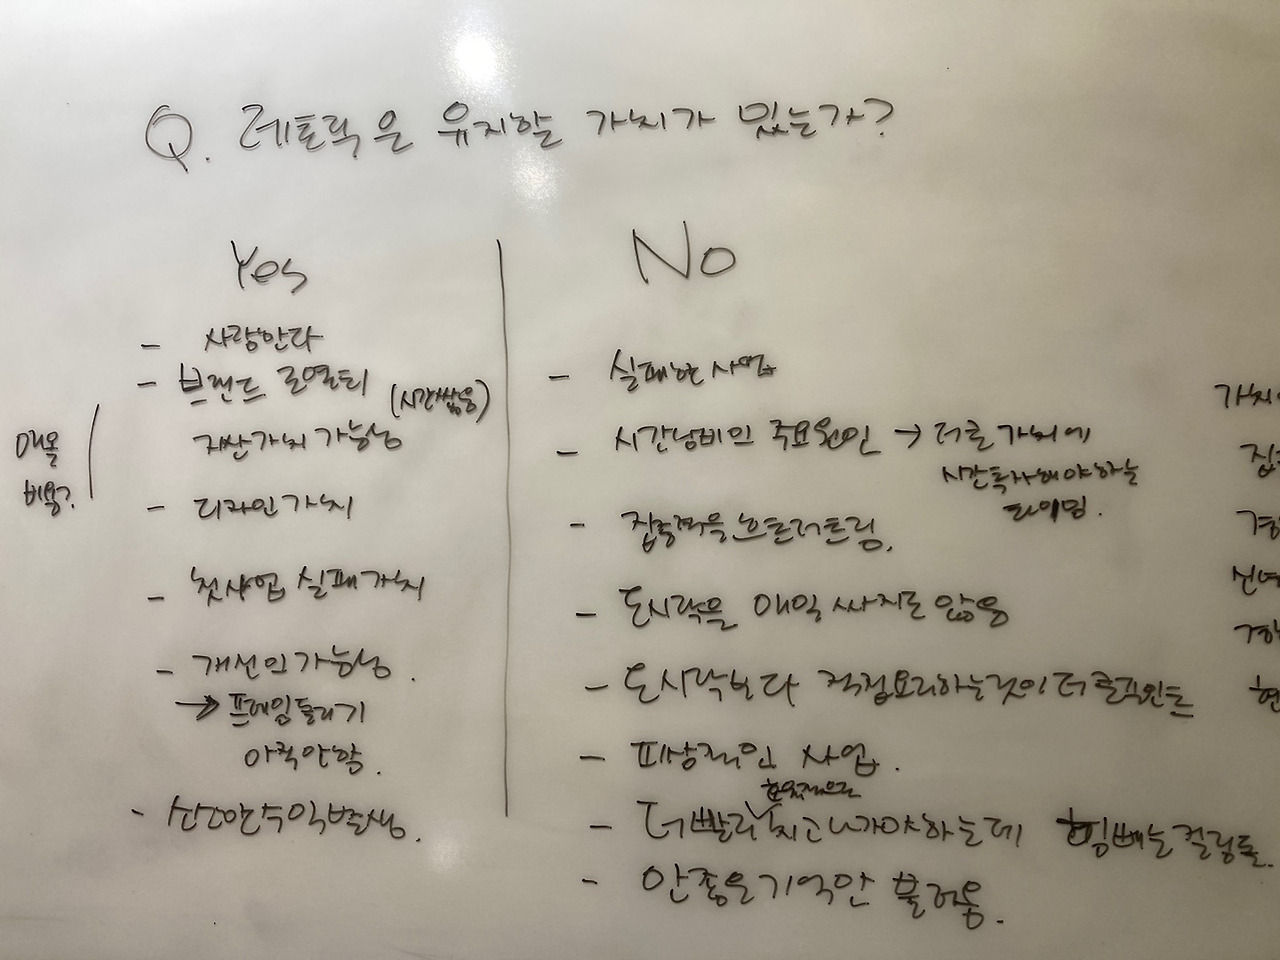 Q. 레토릭은 유지할 가치가 있는가?
Yes
- 사랑한다
- 브랜드 로열티
(시간쌓음)
자산가치 가능성
매몰
비용?
- 디자인가치
- 첫사업 실패가치
- 개선의가능성.
→ 프레임돌리기
아직안함.
- 산소한수익발생.
No
- 실패한 사업
- 시간낭비의 주요원인 → 더큰가치에
시간투자해야하는
타이밍.
- 집중력을 흐트러트림.
- 도시락을 매일 싸지도 않음
- 도시락보다 직접요리하는것이 더 큰포인트
- 피상적인 사업.
효율적으로
- 더빨리 치고나가야하는데 힘빼는 걸림돌.
- 안좋은기억만 불러옴.